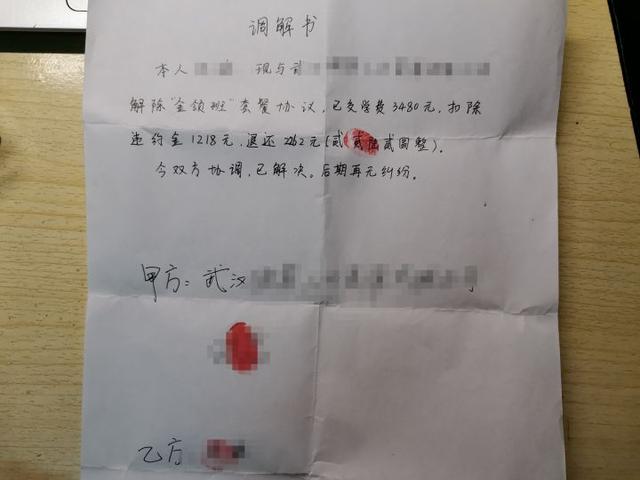 调解书
本人 现与
解除“金领班”套餐协议，已交学费3480元，扣除
违约金1218元，退还2262元（贰 贰陆贰圆整）。
今双方协调，已解次。后期再无纠纷。
甲方：武汉
乙方